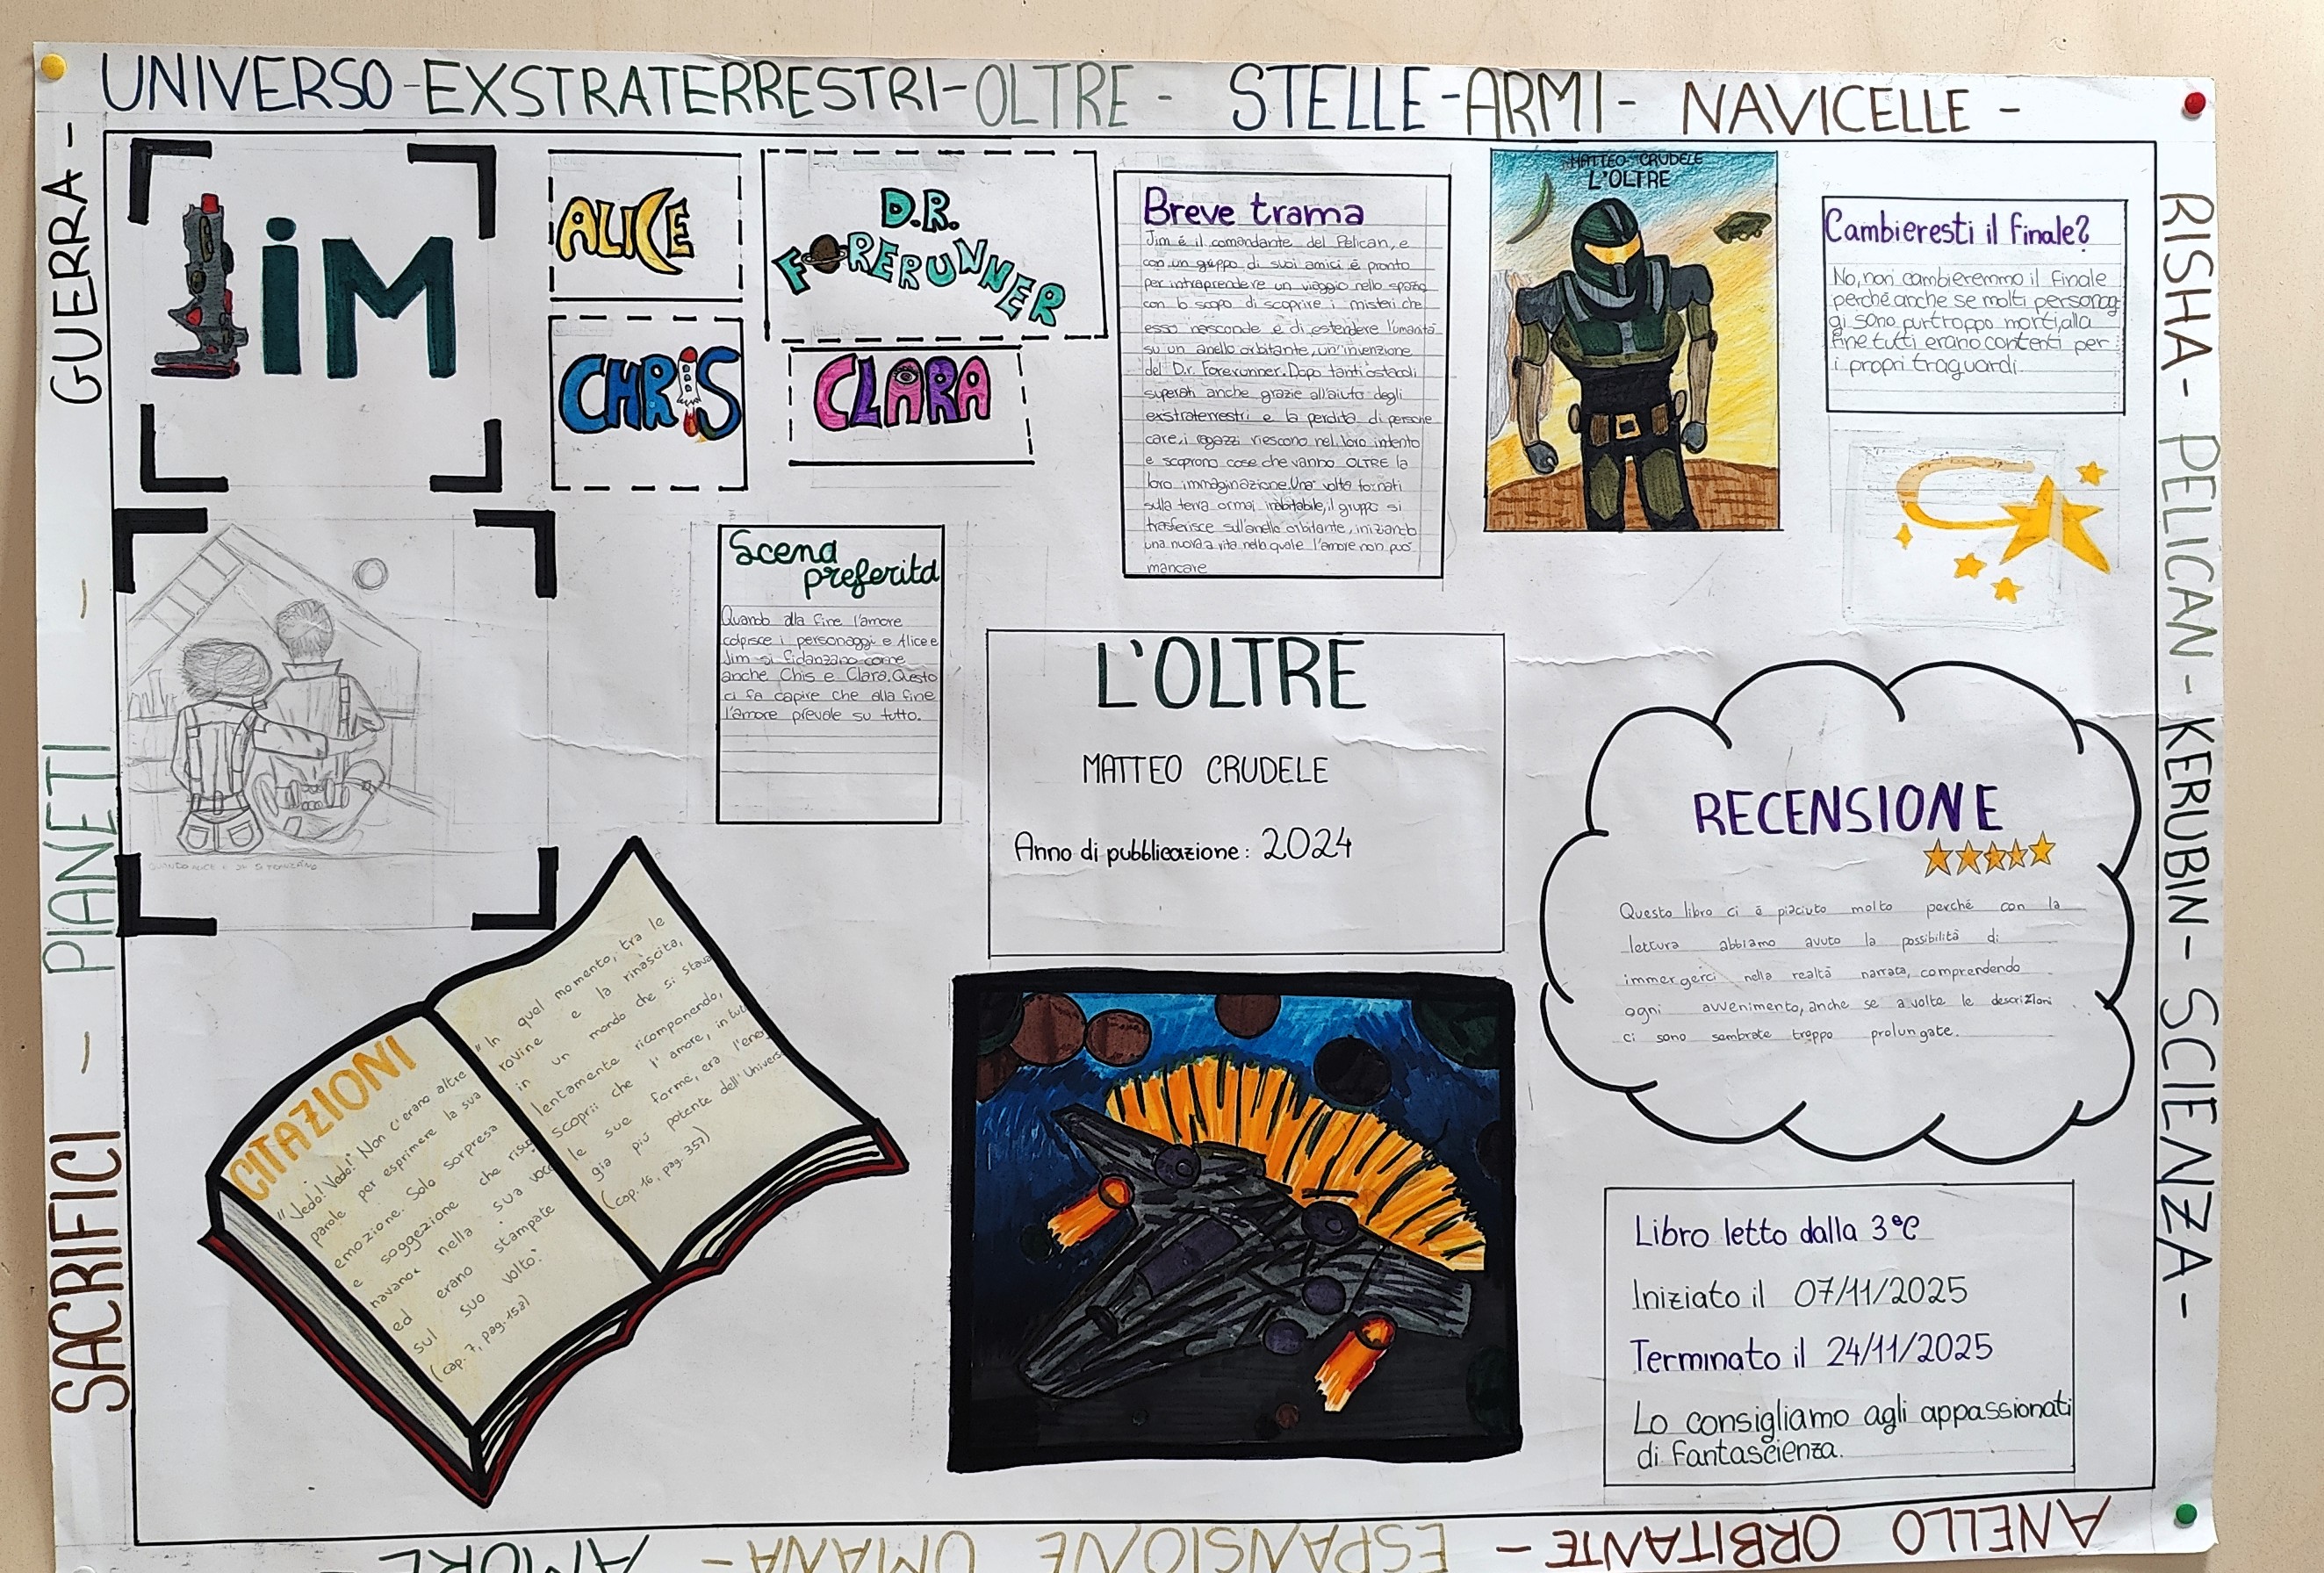 UNIVERSO-EXSTRATERRESTRI-OLTRE - STELLE-ARMI- NAVICELLE -
RISHA- PELICAN- KERUBIN- SCIENZA-
ANELLO ORBITANTE - ESPANSIONE UMANA - AMORE
SACRIFICI - PIANETI - GUERRA -
JiM
ALICE
D.R.
FORERUNNER
CHRiS
CLARA
Breve trama
Jim é il comandante del Pelican, e
con un gruppo di suoi amici é pronto
per intraprendere un viaggio nello spazio
con lo scopo di scoprire i misteri che
esso nasconde e di estendere l'umanitá
su un anello orbitante, un'invenzione
del D.r. Forerunner. Dopo tanti ostacoli
superati anche grazie all'aiuto degli
exstraterrestri e la perdita di persone
care, i ragazzi riescono nel loro intento
e scoprono cose che vanno OLTRE la
loro immaginazione. Una volta tornati
sulla terra ormai inabitabile, il gruppo si
trasferisce sull'anello orbitante, iniziando
una nuova vita nella quale l'amore non puo'
mancare
MATTEO CRUDELE
L'OLTRE
Cambieresti il finale?
No, non cambieremmo il finale
perché anche se molti personag
gi sono purtroppo morti, alla
fine tutti erano contenti per
i propri traguardi.
Scena
preferita
Quando alla fine l'amore
colpisce i personaggi e Alice e
Jim si fidanzano come
anche Chis e Clara. Questo
ci fa capire che alla fine
l'amore prevale su tutto.
QUANDO ALICE E JIM SI FIDANZANO
L'OLTRE
MATTEO CRUDELE
Anno di pubblicazione: 2024
RECENSIONE
Questo libro ci é piaciuto molto perché con la
lettura abbiamo avuto la possibilitá di
immergerci nella realtá narrata, comprendendo
ogni avvenimento, anche se a volte le descrizioni
ci sono sembrate troppo prolungate.
CITAZIONI
"Vedo! Vedo!" Non c'erano altre
parole per esprimere la sua
emozione. Solo sorpresa
e soggezione che risuo
navano nella sua voce
ed erano stampate
sul suo volto."
(cap. 7, pag. 153)
"In quel momento, tra le
rovine e la rinascita,
in un mondo che si stava
lentamente ricomponendo,
scoprii che l'amore, in tutte
le sue forme, era l'ener
gia piú potente dell'Universo
(cap. 16, pag. 357)
Libro letto dalla 3°C
Iniziato il 07/11/2025
Terminato il 24/11/2025
Lo consigliamo agli appassionati
di fantascienza.